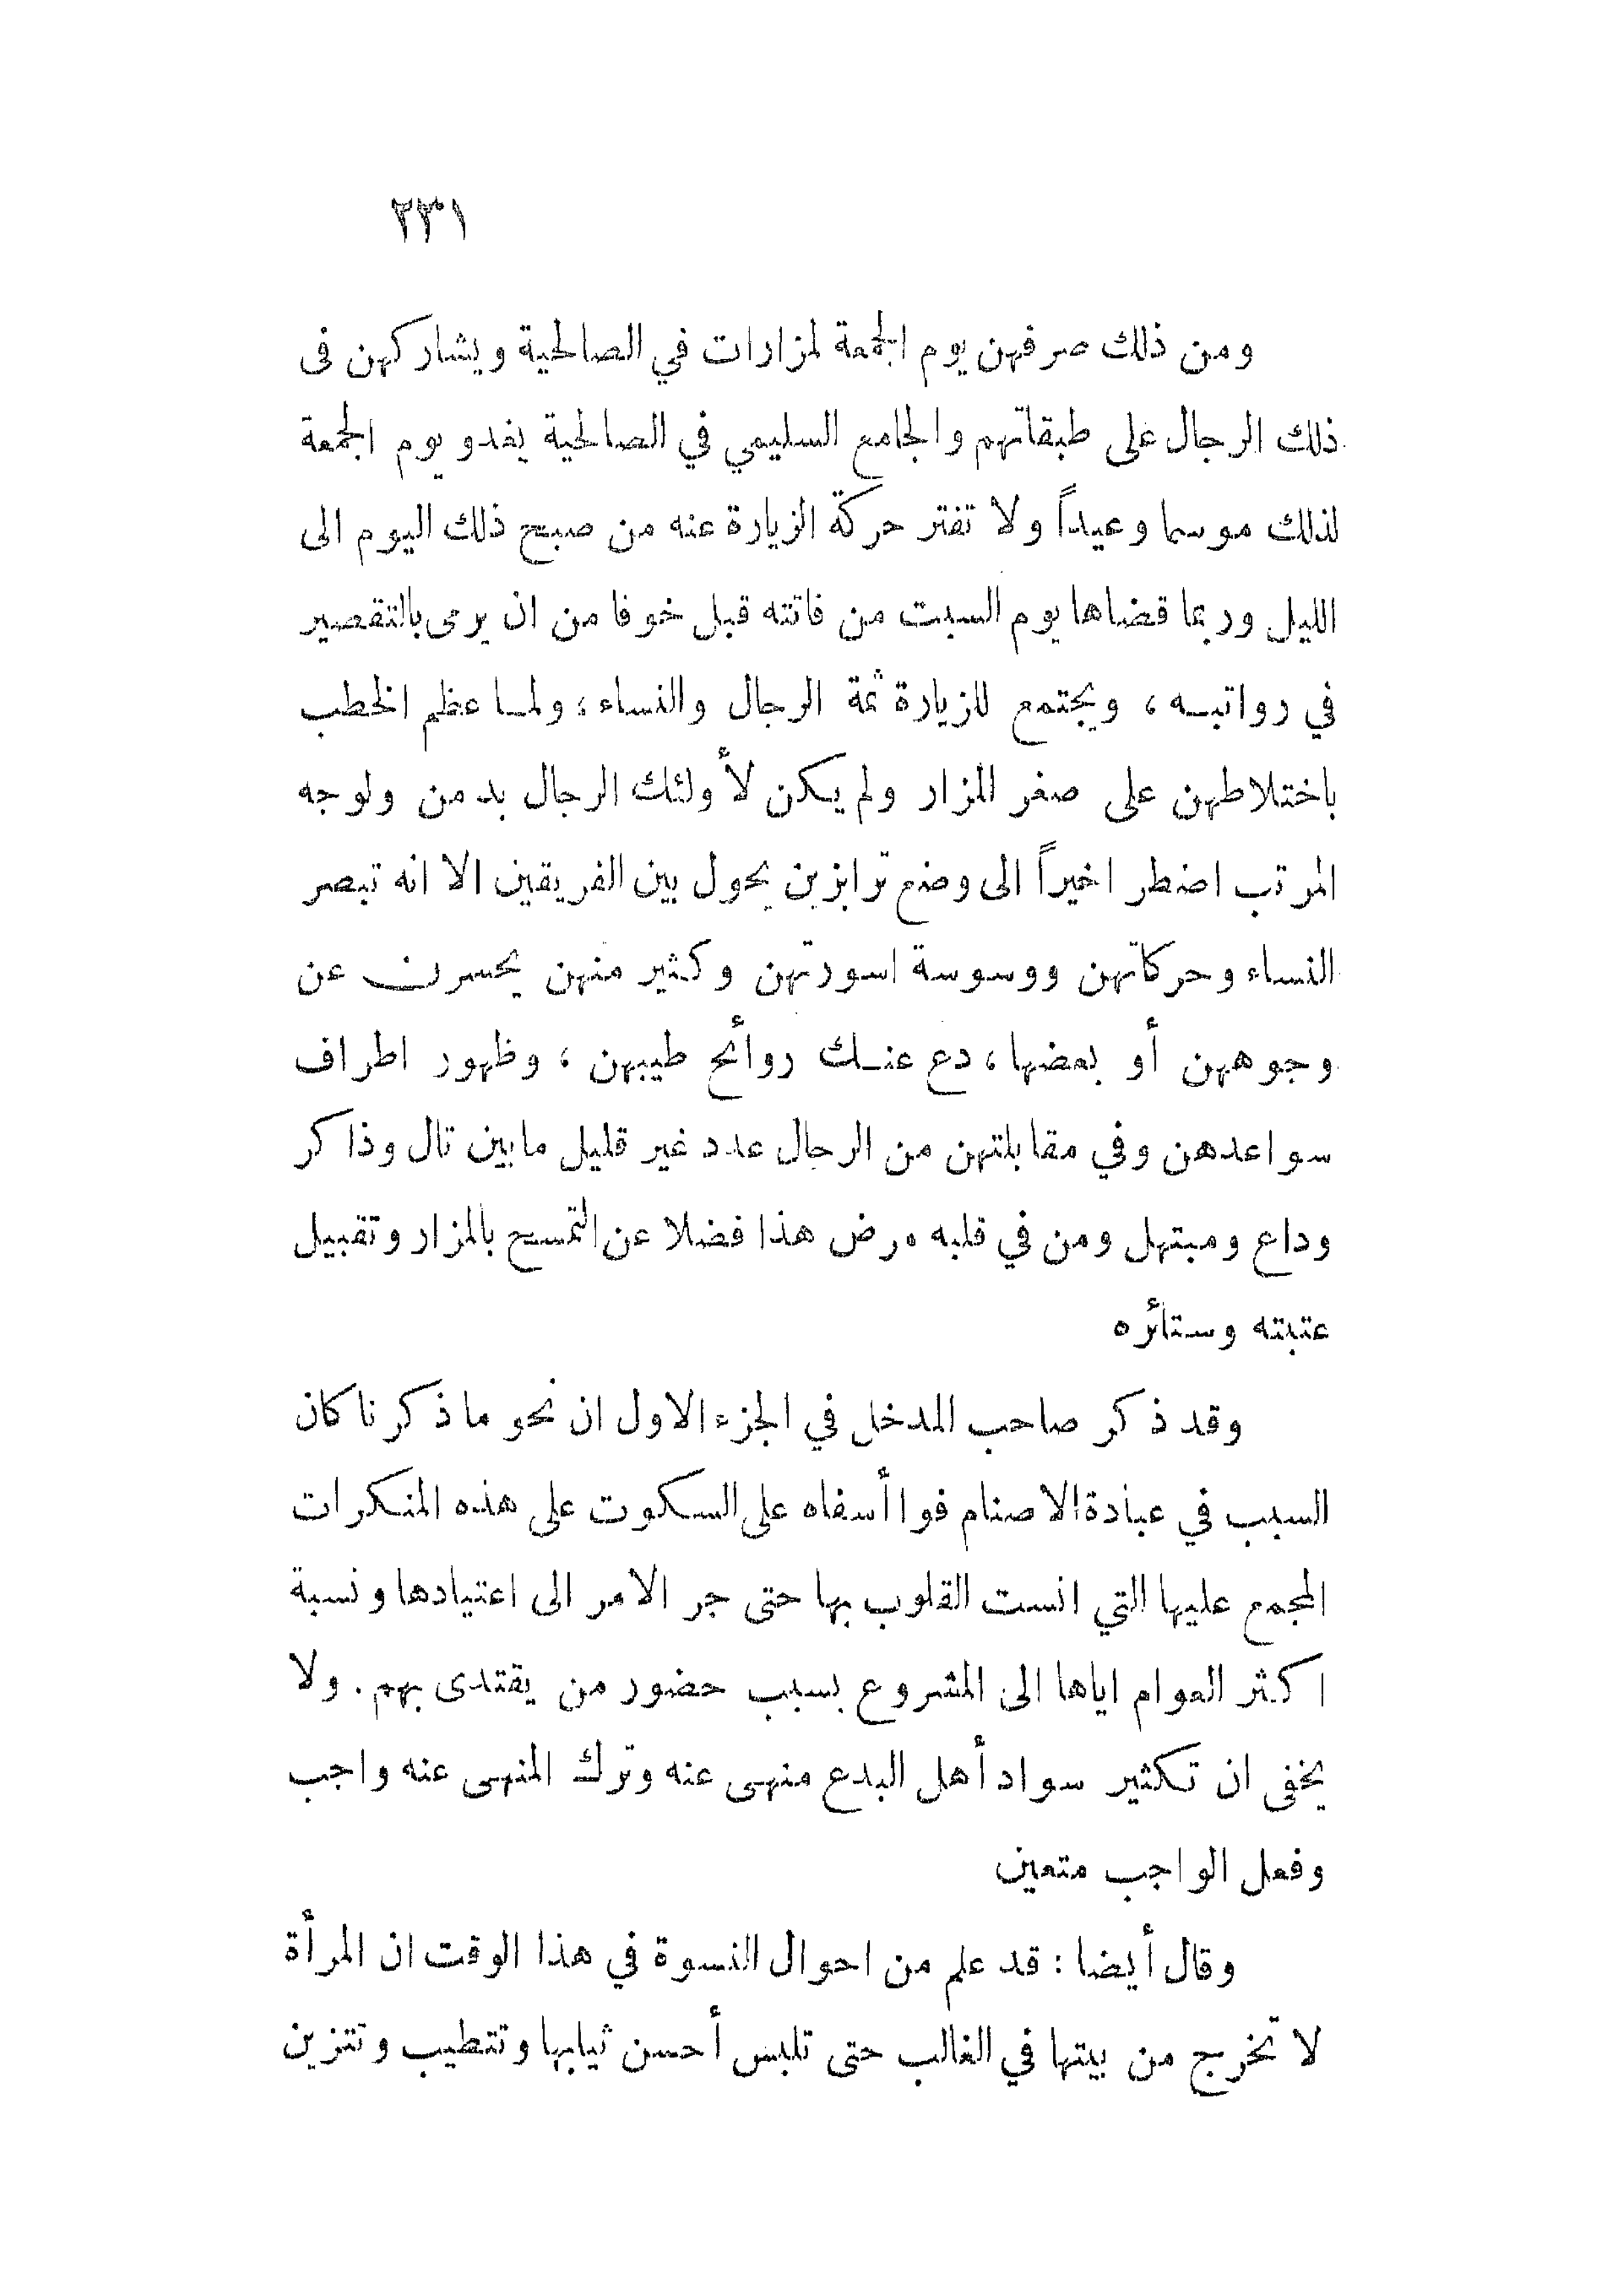 ٢٣١
ومن ذلك صرفهن يوم الجمعة لمزارات في الصالحية ويشاركهن فى
ذلك الرجال على طبقاتهم والجامع السليمي في الصالحية يغدو يوم الجمعة
لذلك موسما وعيداً ولا تفتر حركة الزيارة عنه من صبح ذلك اليوم الى
الليل وربما قضاها يوم السبت من فاتته قبل خوفا من ان يرمى بالتقصير
في رواتبه ، ويجتمع للزيارة ثمة الرجال والنساء ، ولما عظم الخطب
باختلاطهن على صغر المزار ولم يكن لأولئك الرجال بد من ولوجه
المرتب اضطر اخيراً الى وضع ترابزين يحول بين الفريقين الا انه تبصر
النساء وحركاتهن ووسوسة اسورتهن وكثير منهن يحسرن عن
وجوههن أو بعضها ، دع عنك روائح طيبهن ، وظهور اطراف
سواعدهن وفي مقابلتهن من الرجال عدد غير قليل مابين تال وذاكر
وداع ومبتهل ومن في قلبه مرض هذا فضلا عن التمسح بالمزار وتقبيل
عتبته وستائره
وقد ذكر صاحب المدخل في الجزء الاول ان نحو ما ذكرنا كان
السبب في عبادة الاصنام فوا أسفاه على السكوت على هذه المنكرات
المجمع عليها التي انست القلوب بها حتى جر الامر الى اعتيادها ونسبة
اكثر العوام اياها الى المشروع بسبب حضور من يقتدى بهم . ولا
يخفى ان تكثير سواد أهل البدع منهى عنه وترك المنهى عنه واجب
وفعل الواجب متعين
وقال أيضا : قد علم من احوال النسوة في هذا الوقت ان المرأة
لا تخرج من بيتها في الغالب حتى تلبس أحسن ثيابها وتتطيب وتتزين